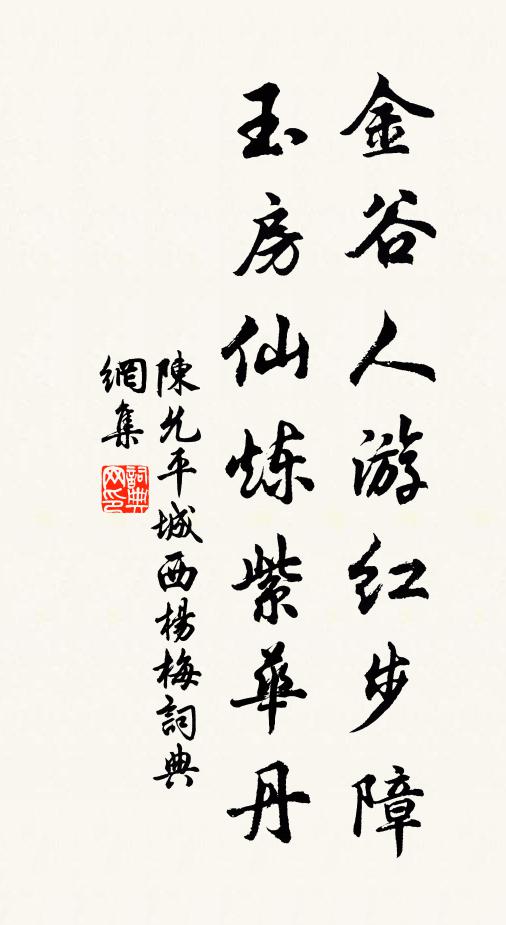 金谷人游红步障
玉房仙炼紫華丹
陳允平城西楊梅詞典
網集
詞典
网印